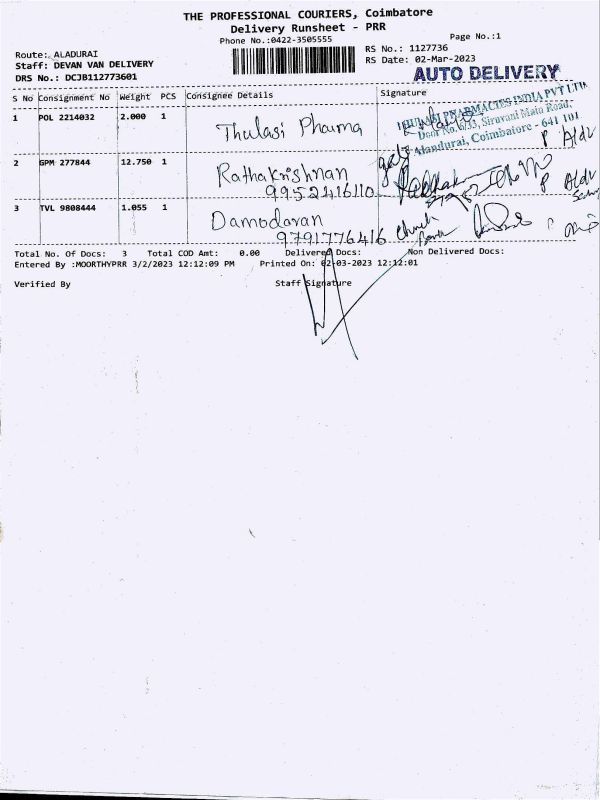 THE PROFESSIONAL COURIERS, Coimbatore
Delivery Runsheet - PRR
Phone No.:0422-3505555
Page No.:1
Route: ALADURAI
RS No.: 1127736
Staff: DEVAN VAN DELIVERY
RS Date: 02-Mar-2023
DRS No.: DCJB112773601
AUTO DELIVERY
S No Consignment No Weight PCS Consignee Details Signature
1 POL 2214032 2.000 1 Thulasi Pharma
THULASI PHARMACIES INDIA PVT LTD
Door No.6/33, Siruvani Main Road,
Alandurai, Coimbatore - 641 101
2 GPM 277844 12.750 1 Rathakrishnan
9952416110
3 TVL 9808444 1.055 1 Damodaran
9791776416
Total No. Of Docs: 3 Total COD Amt: 0.00 Delivered Docs: Non Delivered Docs:
Entered By :MOORTHYPRR 3/2/2023 12:12:09 PM Printed On: 02-03-2023 12:12:01
Verified By Staff Signature